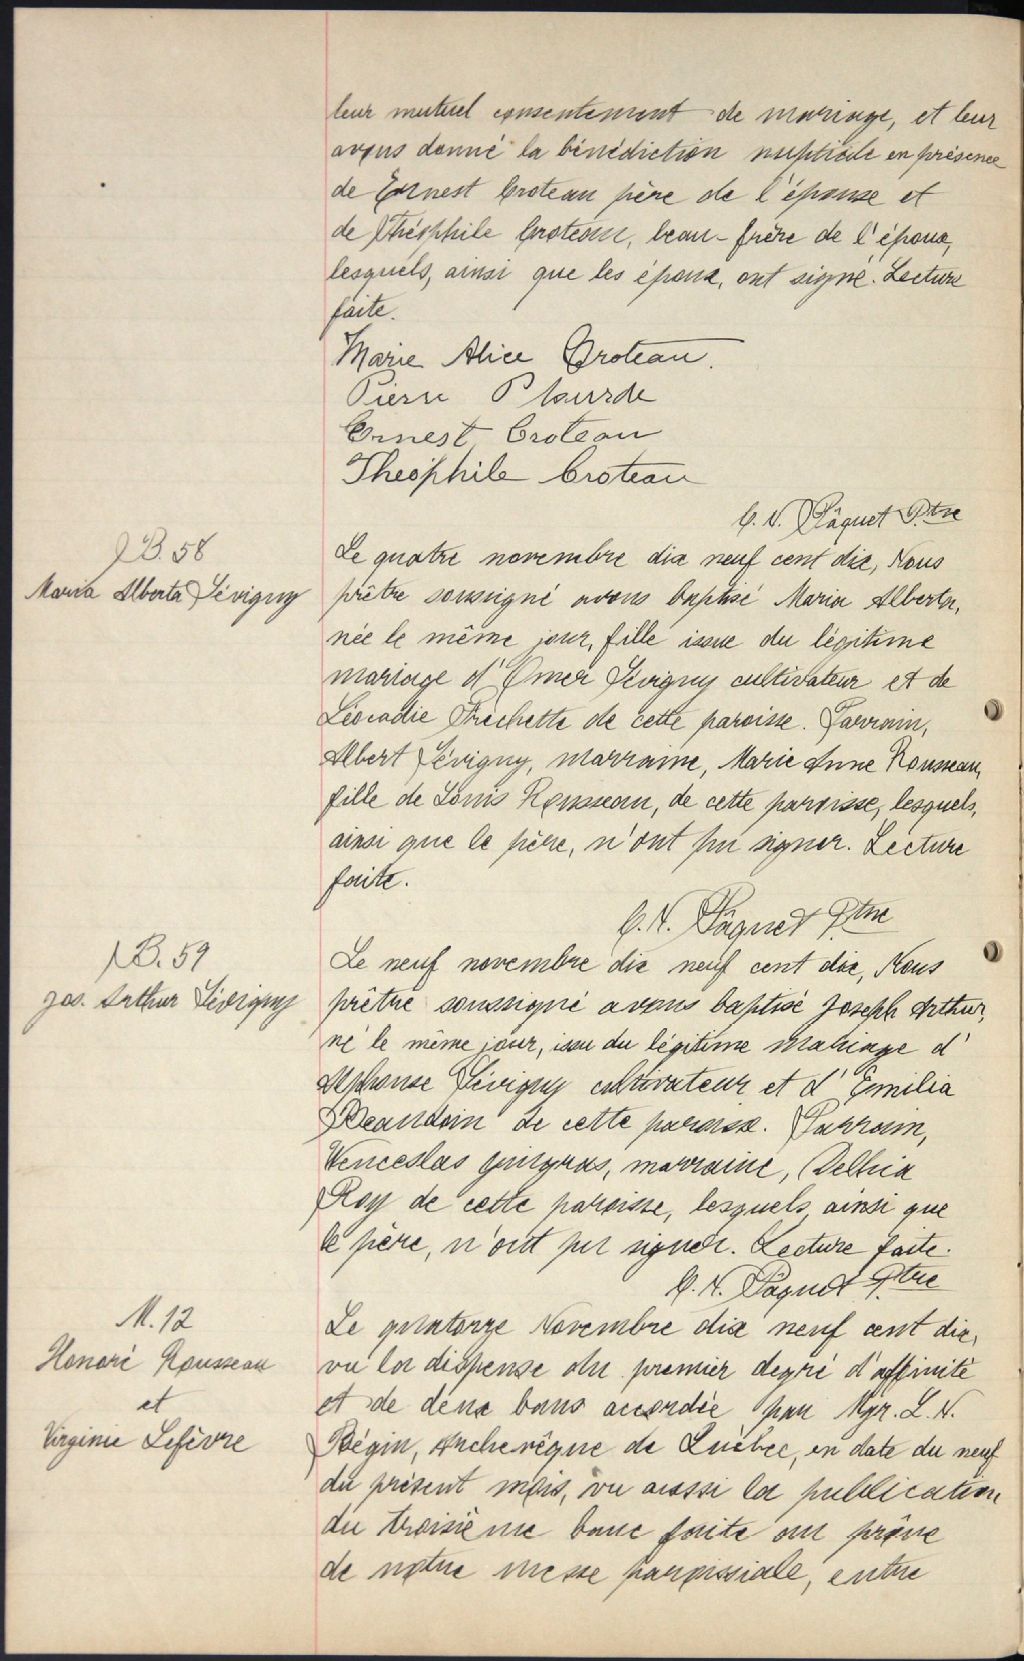 leur mutuel consentement de mariage, et leur
avons donné la bénédiction nuptiale en présence
de Ernest Croteau père de l'épouse et
de Théophile Croteau, beau-frère de l'époux,
lesquels, ainsi que les époux, ont signé. Lecture
faite.
Marie Alice Croteau.
Pierre Plourde
Ernest Croteau
Théophile Croteau
C. N. Pâquet Ptre
B. 58
Maria Alberta Sévigny
Le quatre novembre dix neuf cent dix, Nous
prêtre soussigné avons baptisé Maria Alberta,
née le même jour, fille issue du légitime
mariage d'Omer Sévigny cultivateur et de
Léocadie Fréchette de cette paroisse. Parrain,
Albert Sévigny, marraine, Marie Anne Rousseau,
fille de Louis Rousseau, de cette paroisse, lesquels,
ainsi que le père, n'ont pu signer. Lecture
faite.
C. N. Pâquet Ptre
B. 59
Jos. Arthur Sévigny
Le neuf novembre dix neuf cent dix, Nous
prêtre soussigné avons baptisé Joseph Arthur,
né le même jour, issu du légitime mariage d'
Alphonse Sévigny cultivateur et d'Emilia
Beaudoin de cette paroisse. Parrain,
Wenceslas Gingras, marraine, Delhia
Roy de cette paroisse, lesquels, ainsi que
le père, n'ont pu signer. Lecture faite.
C. N. Pâquet Ptre
M. 12
Honoré Rousseau
et
Virginie Lefèvre
Le quatorze Novembre dix neuf cent dix,
vu la dispense du premier degré d'affinité
et de deux bans accordée par Mgr. L. N.
Bégin, Archevêque de Québec, en date du neuf
du présent mois, vu aussi la publication
du troisième banc faite au prône
de notre messe paroissiale, entre